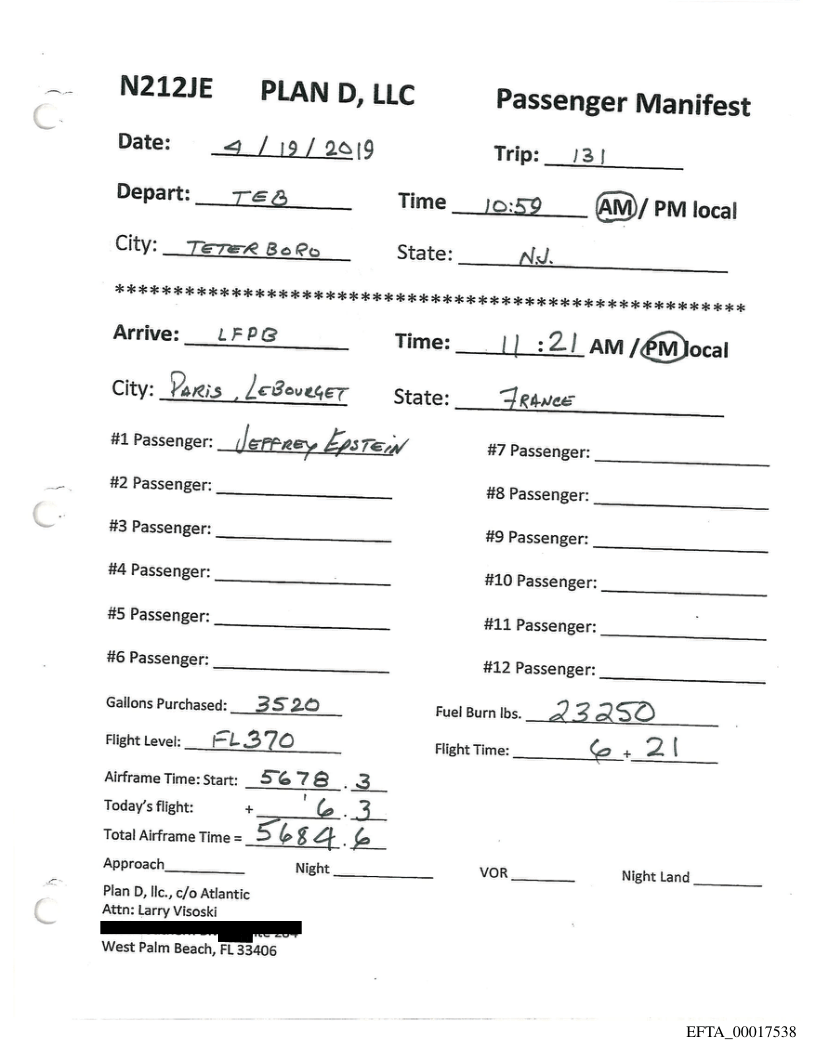 N212JE PLAN D, LLC Passenger Manifest
Date: 4 / 19 / 2019 Trip: 131
Depart: TEB Time 10:59 AM / PM local
City: TETERBORO State: N.J.
******************************************************
Arrive: LFPB Time: 11:21 AM / PM local
City: PARIS, LEBOURGET State: FRANCE
#1 Passenger: JEFFREY EPSTEIN #7 Passenger:
#2 Passenger: #8 Passenger:
#3 Passenger: #9 Passenger:
#4 Passenger: #10 Passenger:
#5 Passenger: #11 Passenger:
#6 Passenger: #12 Passenger:
Gallons Purchased: 3520 Fuel Burn lbs. 23250
Flight Level: FL370 Flight Time: 6 + 21
Airframe Time: Start: 5678.3
Today's flight: + 6.3
Total Airframe Time = 5684.6
Approach Night VOR Night Land
Plan D, llc., c/o Atlantic
Attn: Larry Visoski
West Palm Beach, FL 33406
EFTA_00017538